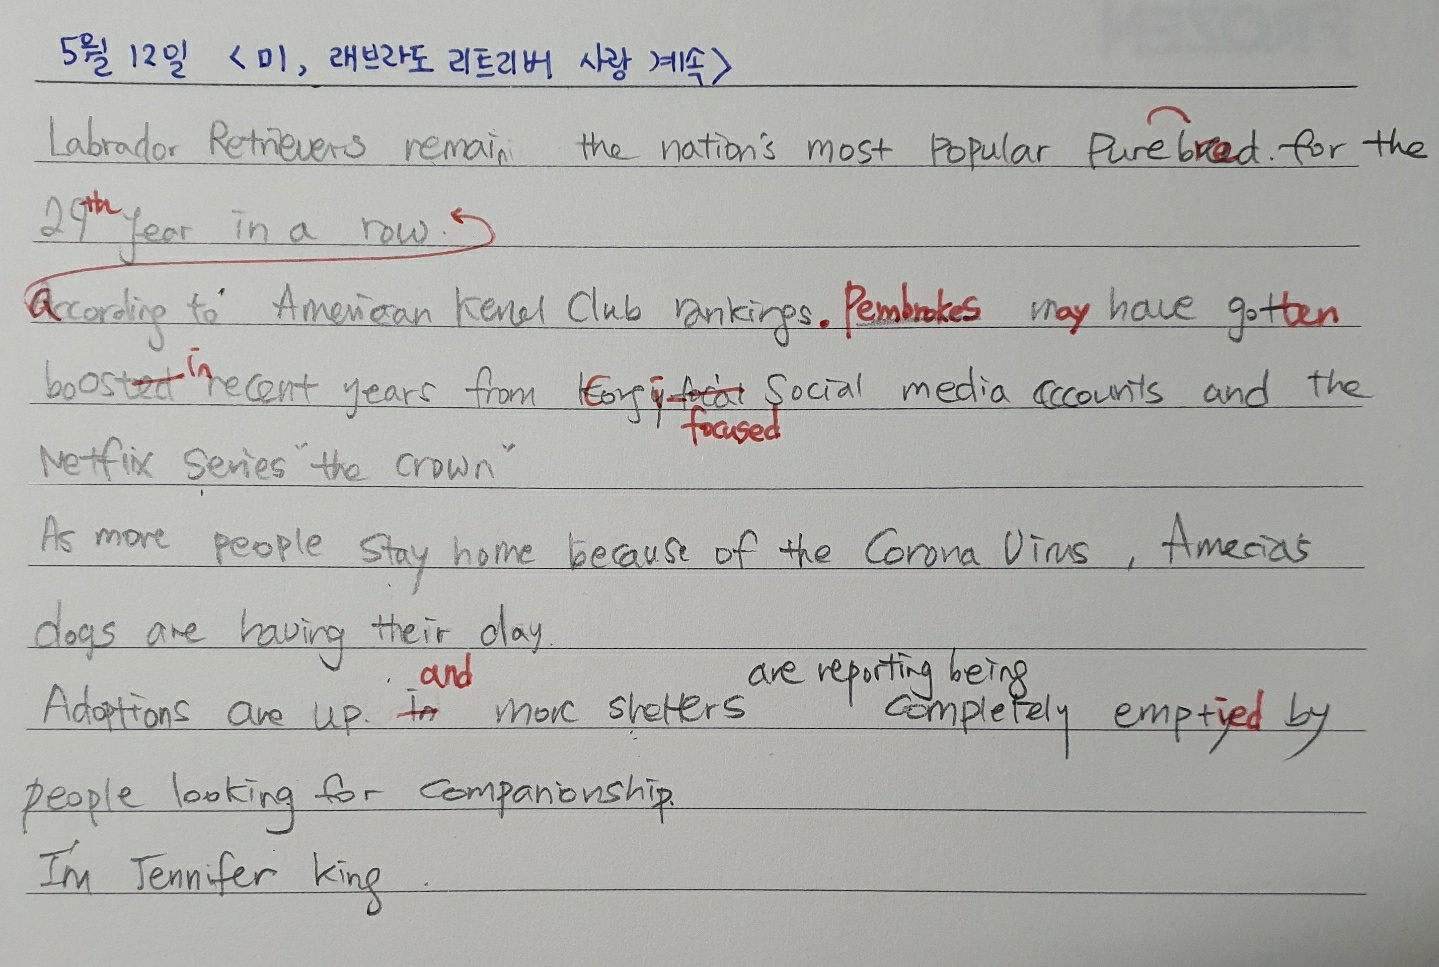 5월 12일 <미, 래브라도 리트리버 사랑 계속>
Labrador Retrievers remain the nation's most popular Purebred. for the
29th year in a row.
according to American Kenel Club rankings. Pembrokes may have gotten
boosted in recent years from focused Social media accounts and the
Netflix Series "the crown"
As more people stay home because of the Corona Virus, Amecias
dogs are having their day.
Adoptions are up. in and more shelters are reporting being completely emptied by
people looking for companionship.
I'm Jennifer King.